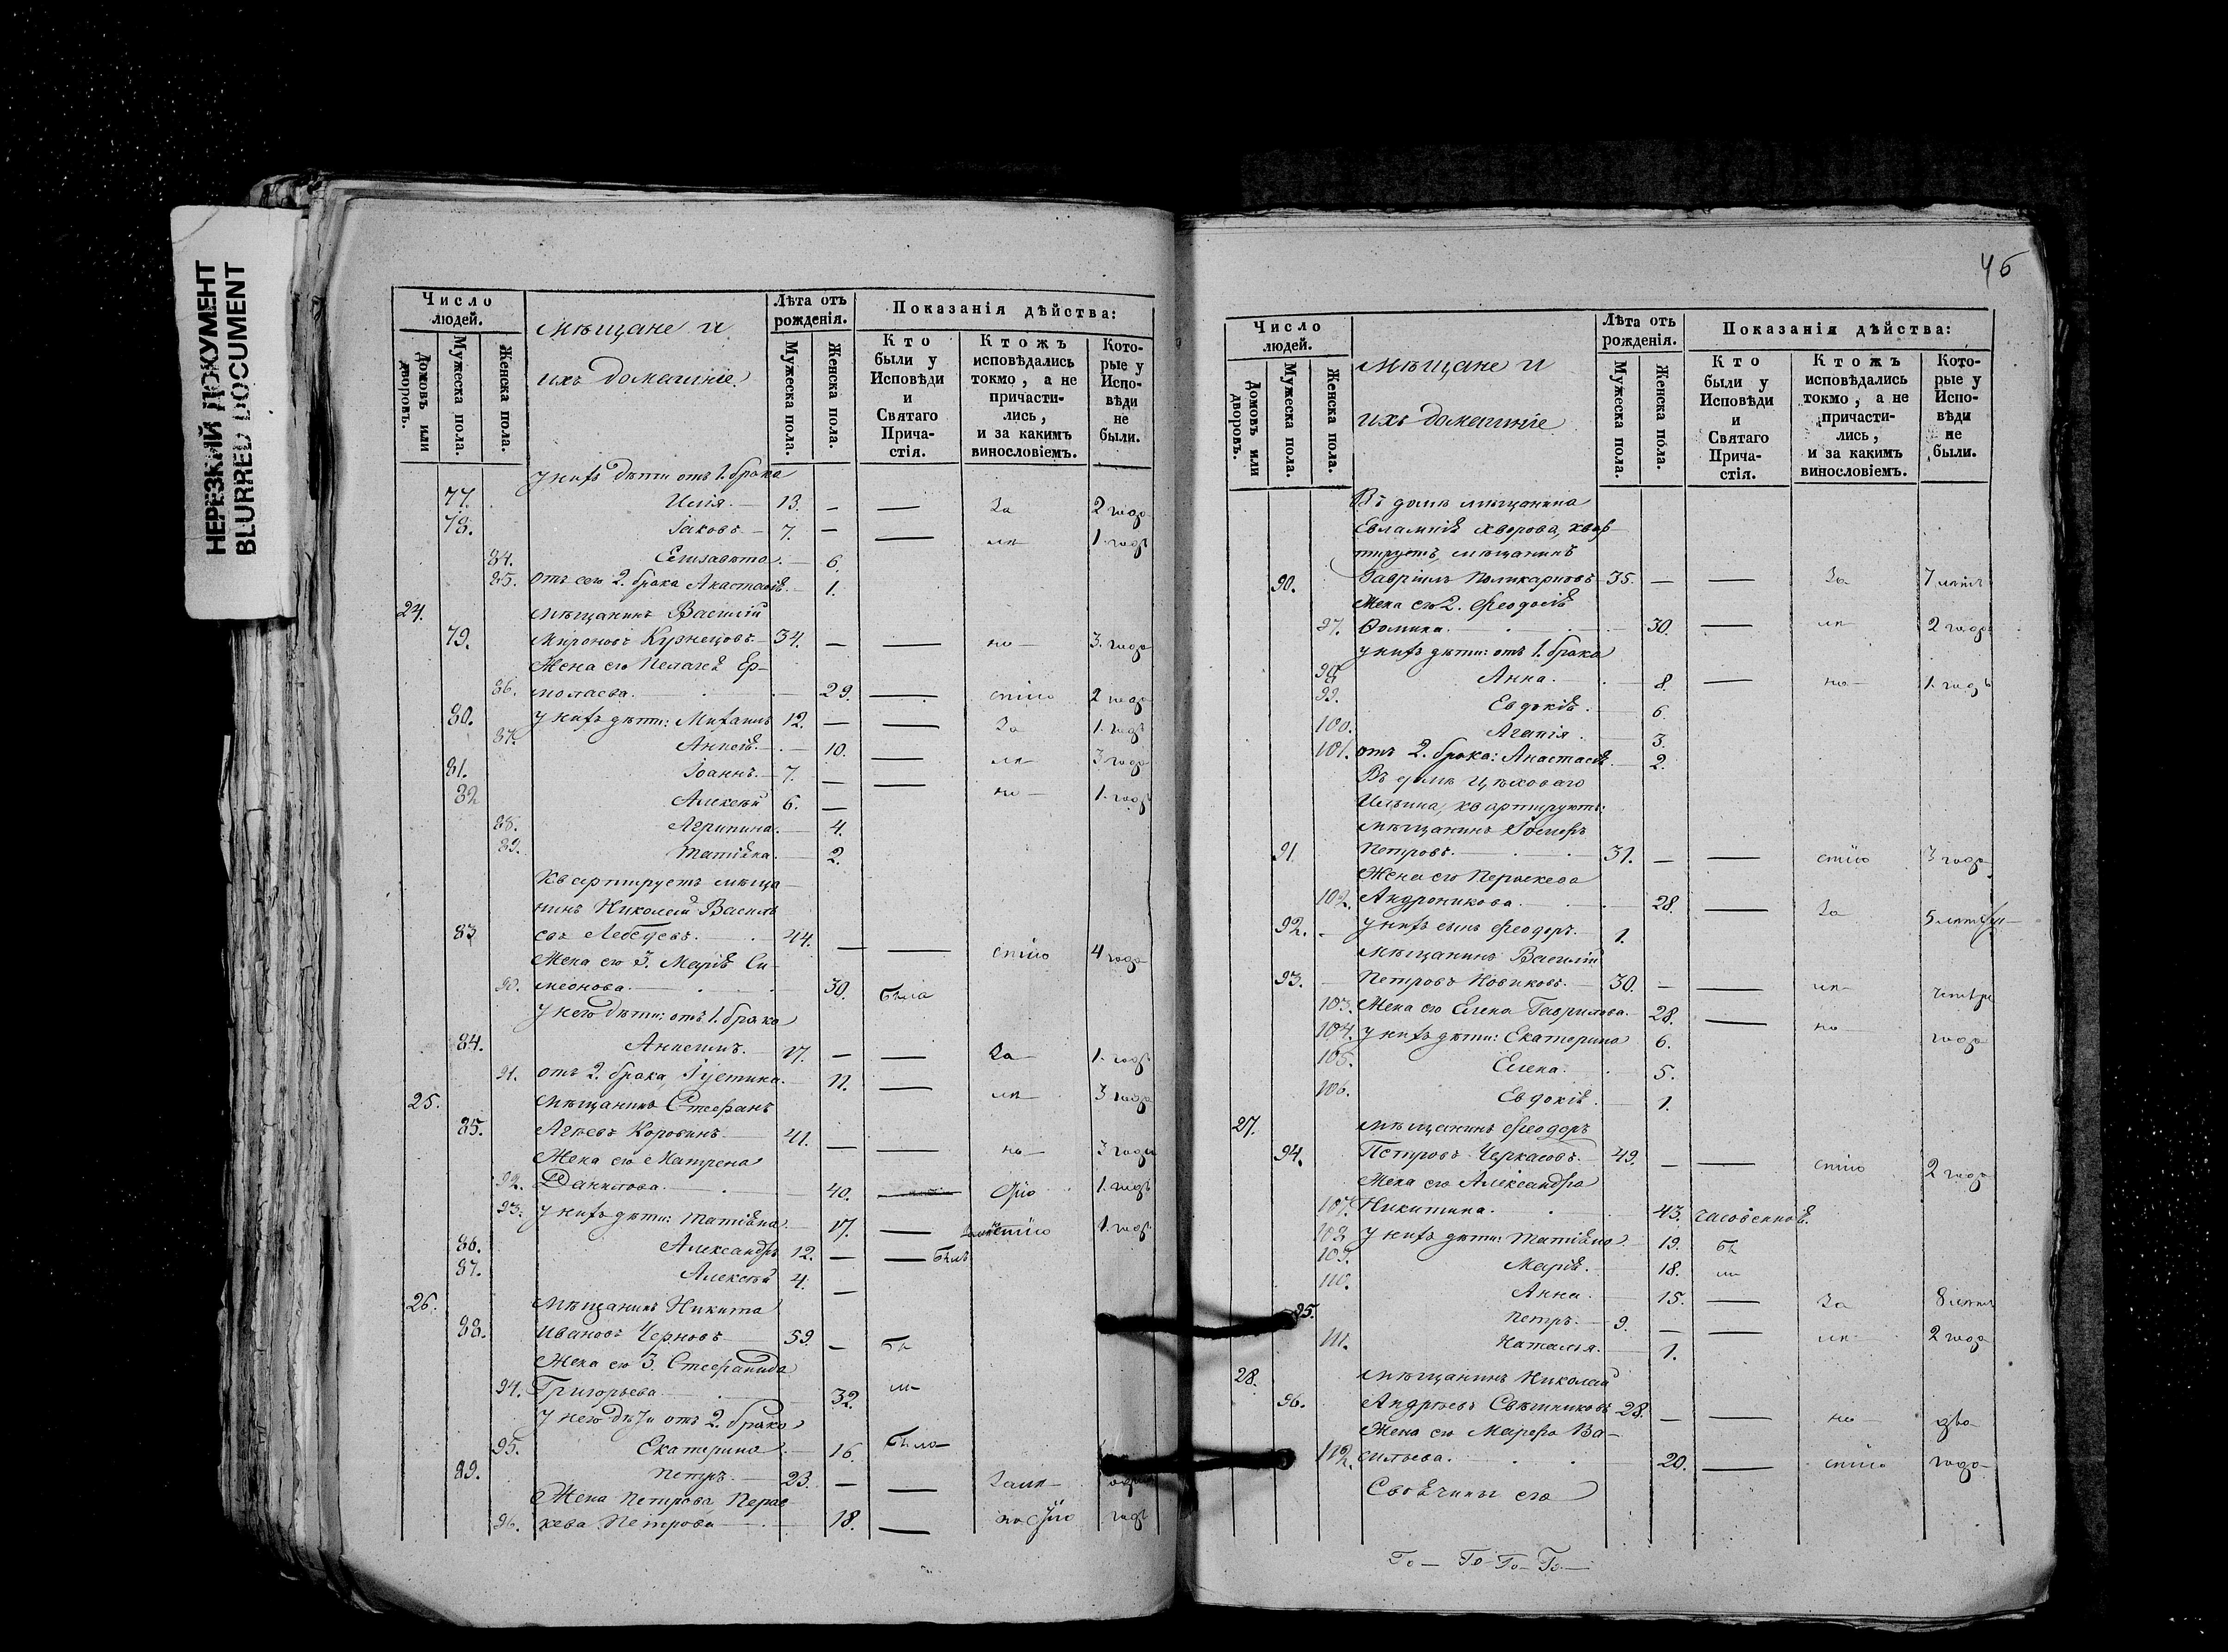 НЕРЕЗКИЙ ДОКУМЕНТ
BLURRED DOCUMENT
Число людей.
мѣщане и
ихъ домашніе.
Лѣта отъ рожденія.
Показанія дѣйства:
Домовъ или дворовъ.
Мужеска пола.
Женска пола.
Мужеска пола.
Женска пола.
Кто были у Исповѣди и Святаго Причастія.
Ктожъ исповѣдались токмо, а не причастились, и за какимъ винословіемъ.
Которые у Исповѣди не были.
у нихъ дѣти отъ 1. брака
77. Илія. 13. — — За 2 года
78. Іаковъ. 7. — — 1. годъ
84. Елизавета. 6.
85. отъ сего 2. брака Анастасія. 1.
24. мѣщанинъ Василій
79. Мироновъ Кузнецовъ. 34. — — но 3. года
Жена его Пелагея Ер-
86. молаева. 29. — стію 2 года
80. у нихъ дѣти: Михаилъ 12. — — За 1. годъ
87. 10. — 3 года
81. Іоаннъ. 7. — — но 1. годъ
82 Алексѣй 6. —
88. Агрипина. 4.
89. Татіяна. 2.
Квартируетъ мѣща-
нинъ Николай Василь
83 евъ Лебедевъ. 44. — — стію 4 года
Жена его 3. Марія Си-
90. меонова. 30. была
у него дѣти: отъ 1. брака
84. 17. — — За 1. годъ
91. отъ 2. брака, Іустина. 11. — 3 года
25. мѣщанинъ Стефанъ
85. Агѣевъ Коровинъ 41. — — но 3 года
Жена его Матрена
92. Данилова. 40. 1. годъ
93. у нихъ дѣти: Татіяна. 17. — стію 1. годъ
86. Александръ 12. — — былъ
87. Алексѣй 4. —
26. мѣщанинъ Никита
88. Ивановъ Черновъ 59. — бы
Жена его 3. Стефанида
94. Григорьева 32. ли
У него дѣти отъ 2. брака
95. Екатерина 16. была
89. Петръ. 23. — —
Жена Петрова Парас
96. кева Петрова 18. — годъ
46
Число людей.
мѣщане и
ихъ домашніе
Лѣта отъ рожденія.
Показанія дѣйства:
Домовъ или дворовъ.
Мужеска пола.
Женска пола.
Мужеска пола.
Женска пола.
Кто были у Исповѣди и Святаго Причастія.
Ктожъ исповѣдались токмо, а не причастились, и за какимъ винословіемъ.
Которые у Исповѣди не были.
Въ домѣ мѣщанина
Евлампія Хворова, квар-
тируетъ, мѣщанинъ
90. Гавріилъ Поликарповъ 35. — — За 7 лѣтъ
Жена его 2. Феодосія
97. Фомина. 30. — 2 года
у нихъ дѣти: отъ 1. брака
98. Анна. 8. — но 1. годъ
99. Евдокія. 6.
100. Агапія. 3.
101. отъ 2. брака: Анастасія. 2.
Въ домѣ Цѣховаго
Ильина, квартируютъ:
мѣщанинъ
91 Петровъ. 31. — — стію 3 года
Жена его Параскева
102. Андроникова. 28. — За 5 лѣтъ
92. у нихъ сынъ Феодоръ. 1.
мѣщанинъ Василій
93. Петровъ Новиковъ. 30. — — четыре
103. Жена его Елена Гаврилова. 28. — но
104. у нихъ дѣти: Екатерина 6. года
105. Елена. 5.
106. Евдокія. 1.
27. мѣщанинъ Феодоръ
94. Петровъ Черкасовъ. 49. — — стію 2 года
Жена его Александра
107. Никитина. 43. часовенной.
108 у нихъ дѣти: Татіяна. 19. бы
109. Марія. 18. ли
110. Анна. 15. — За 8 лѣтъ
95. Петръ. 9. — — 2 года
111. Наталья. 1.
28. мѣщанинъ Николай
96. Андреевъ Свѣшниковъ 28. — — но два
Жена его Марфа Ва-
112. сильева. 20. — стію года
Своячины его